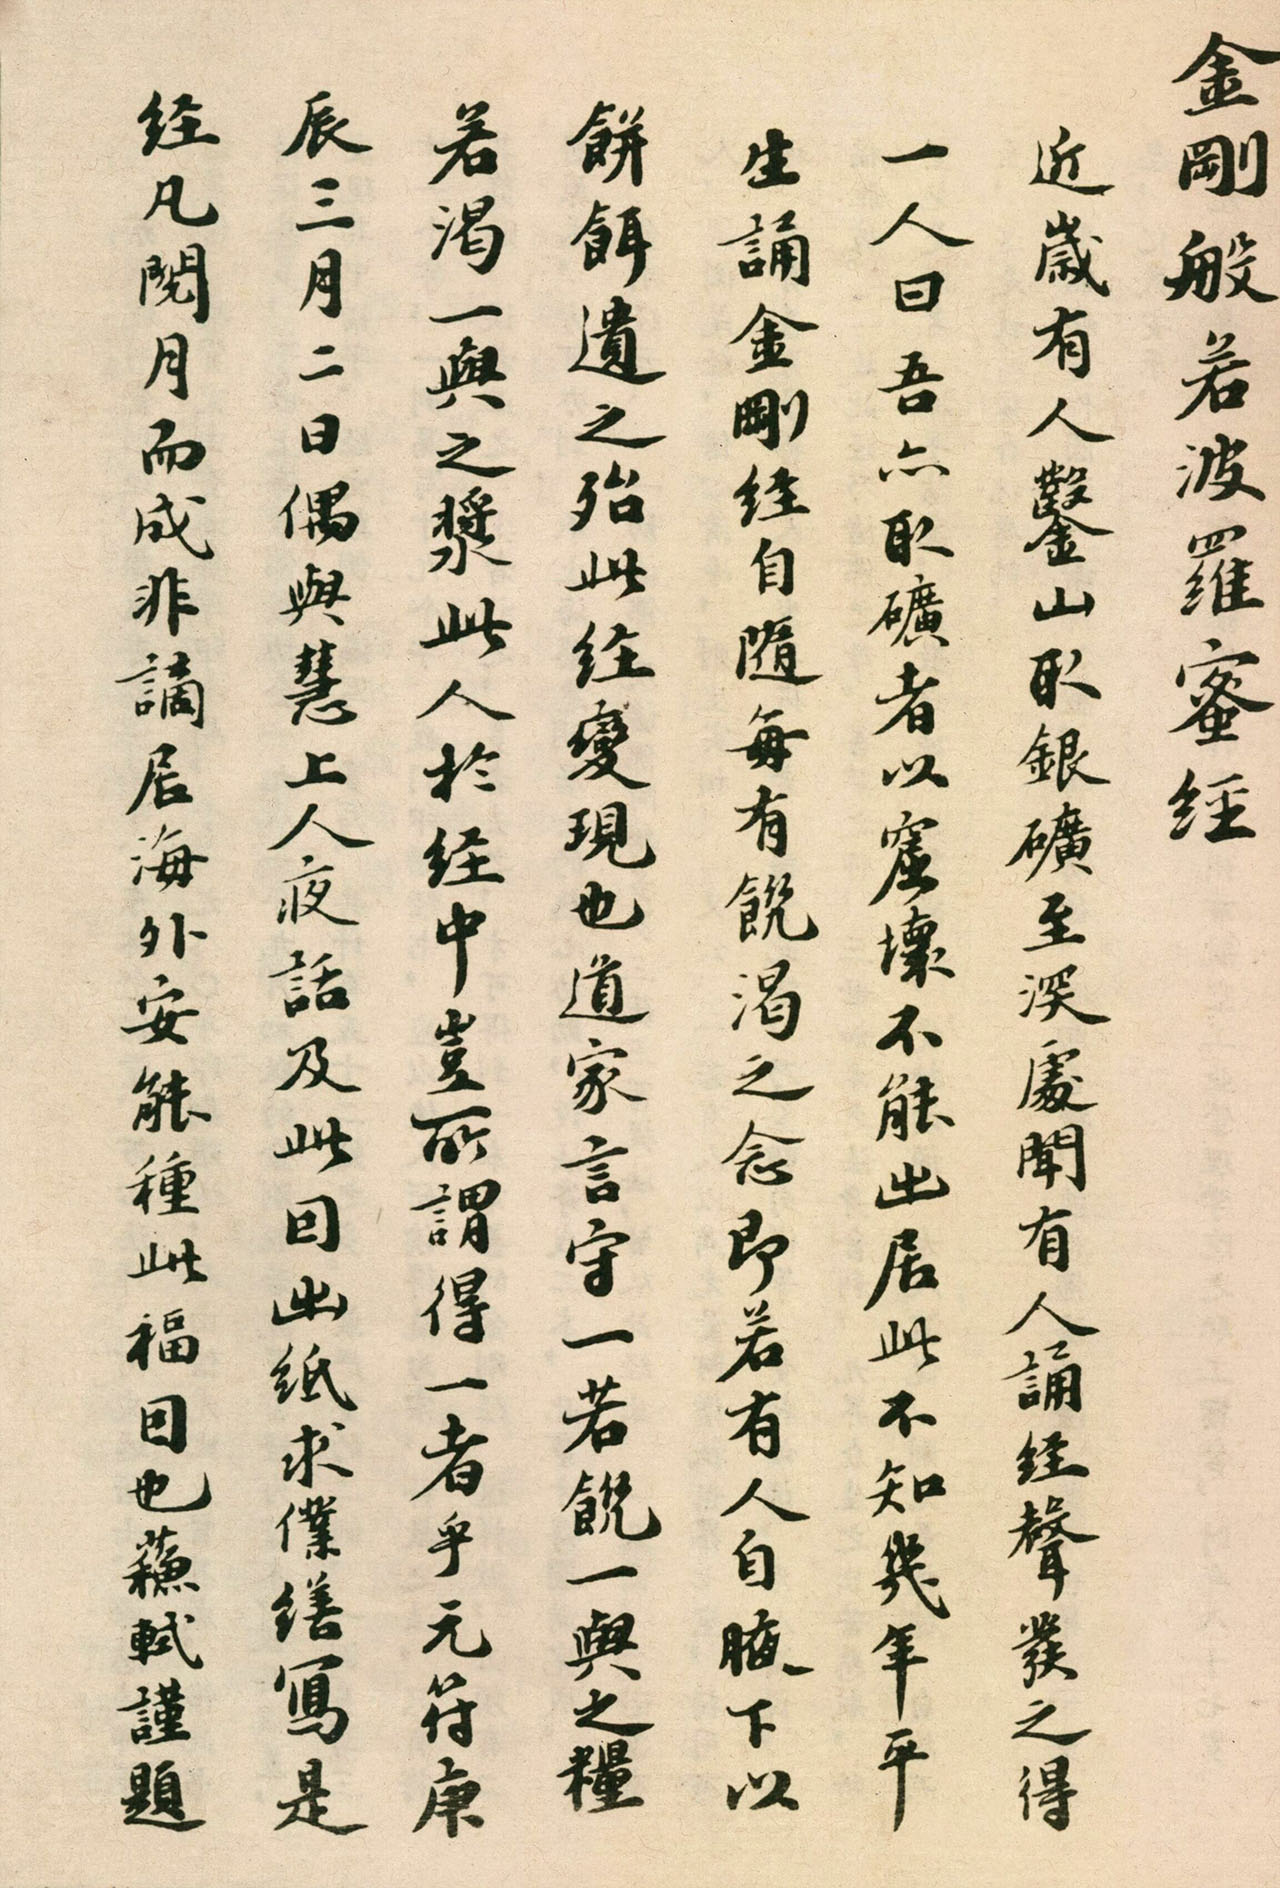 金剛般若波羅蜜經
近歲有人鑿山取銀礦至深處聞有人誦經聲發之得
一人曰吾亦取礦者以窟壞不能出居此不知幾年平
生誦金剛經自隨每有飢渴之念即若有人自腋下以
餅餌遺之殆此經變現也道家言守一若飢一與之糧
若渴一與之漿此人於經中豈所謂得一者乎元符庚
辰三月二日偶與慧上人夜話及此因出紙求僕繕寫是
經凡閱月而成非謫居海外安能種此福因也蘇軾謹題